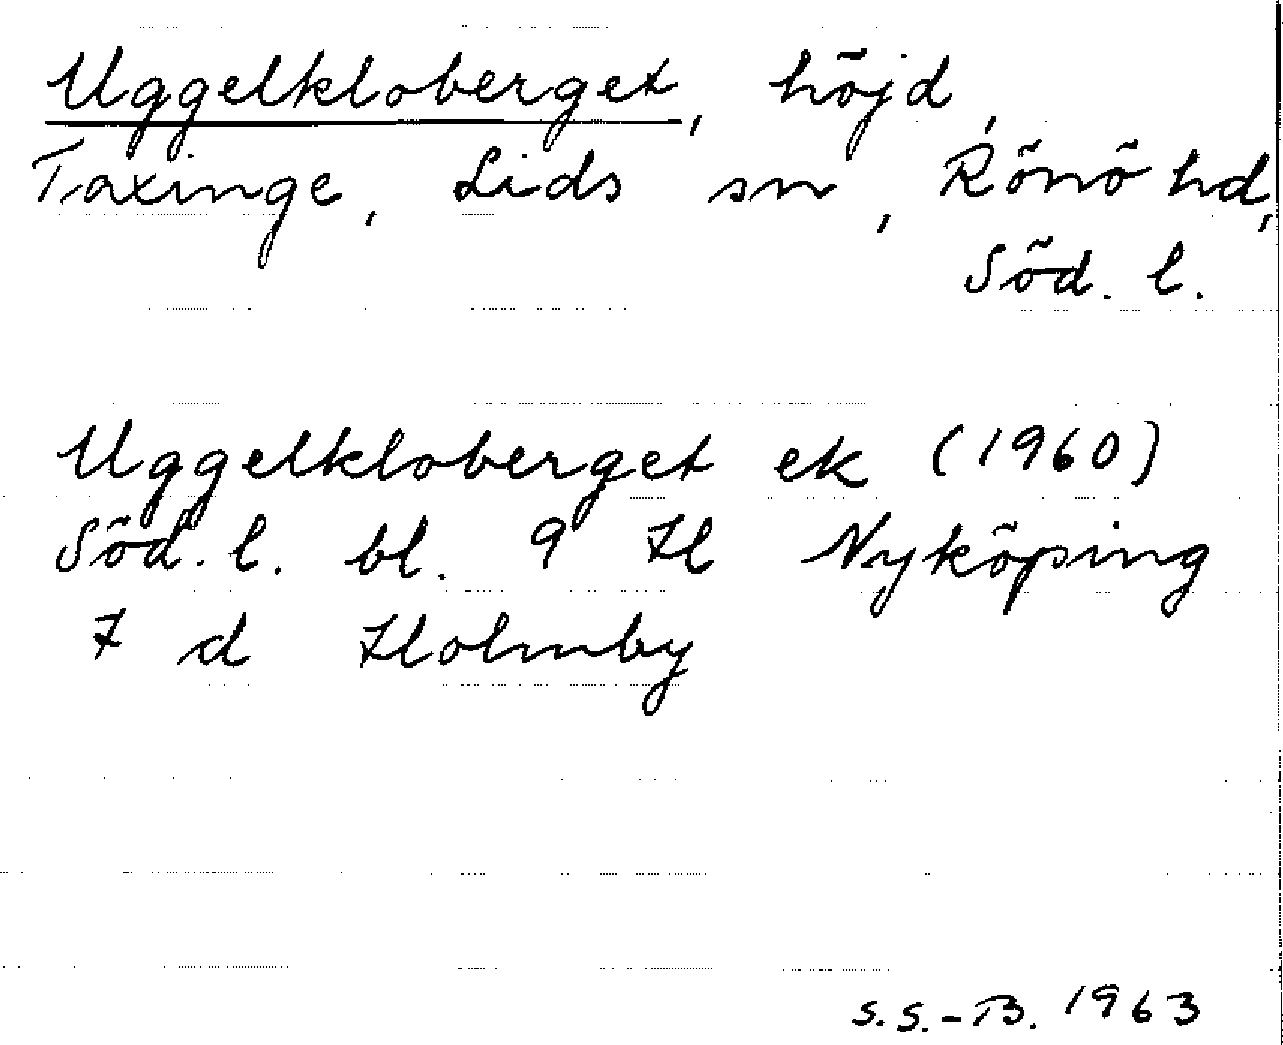 Uggelkloberget, höjd,
Taxinge, Lids sn, Rönö hd,
Söd. l.
Uggelkloberget ek (1960)
Söd. l. bl. 9 H Nyköping
7 d Holmby
S.S.-B. 1963